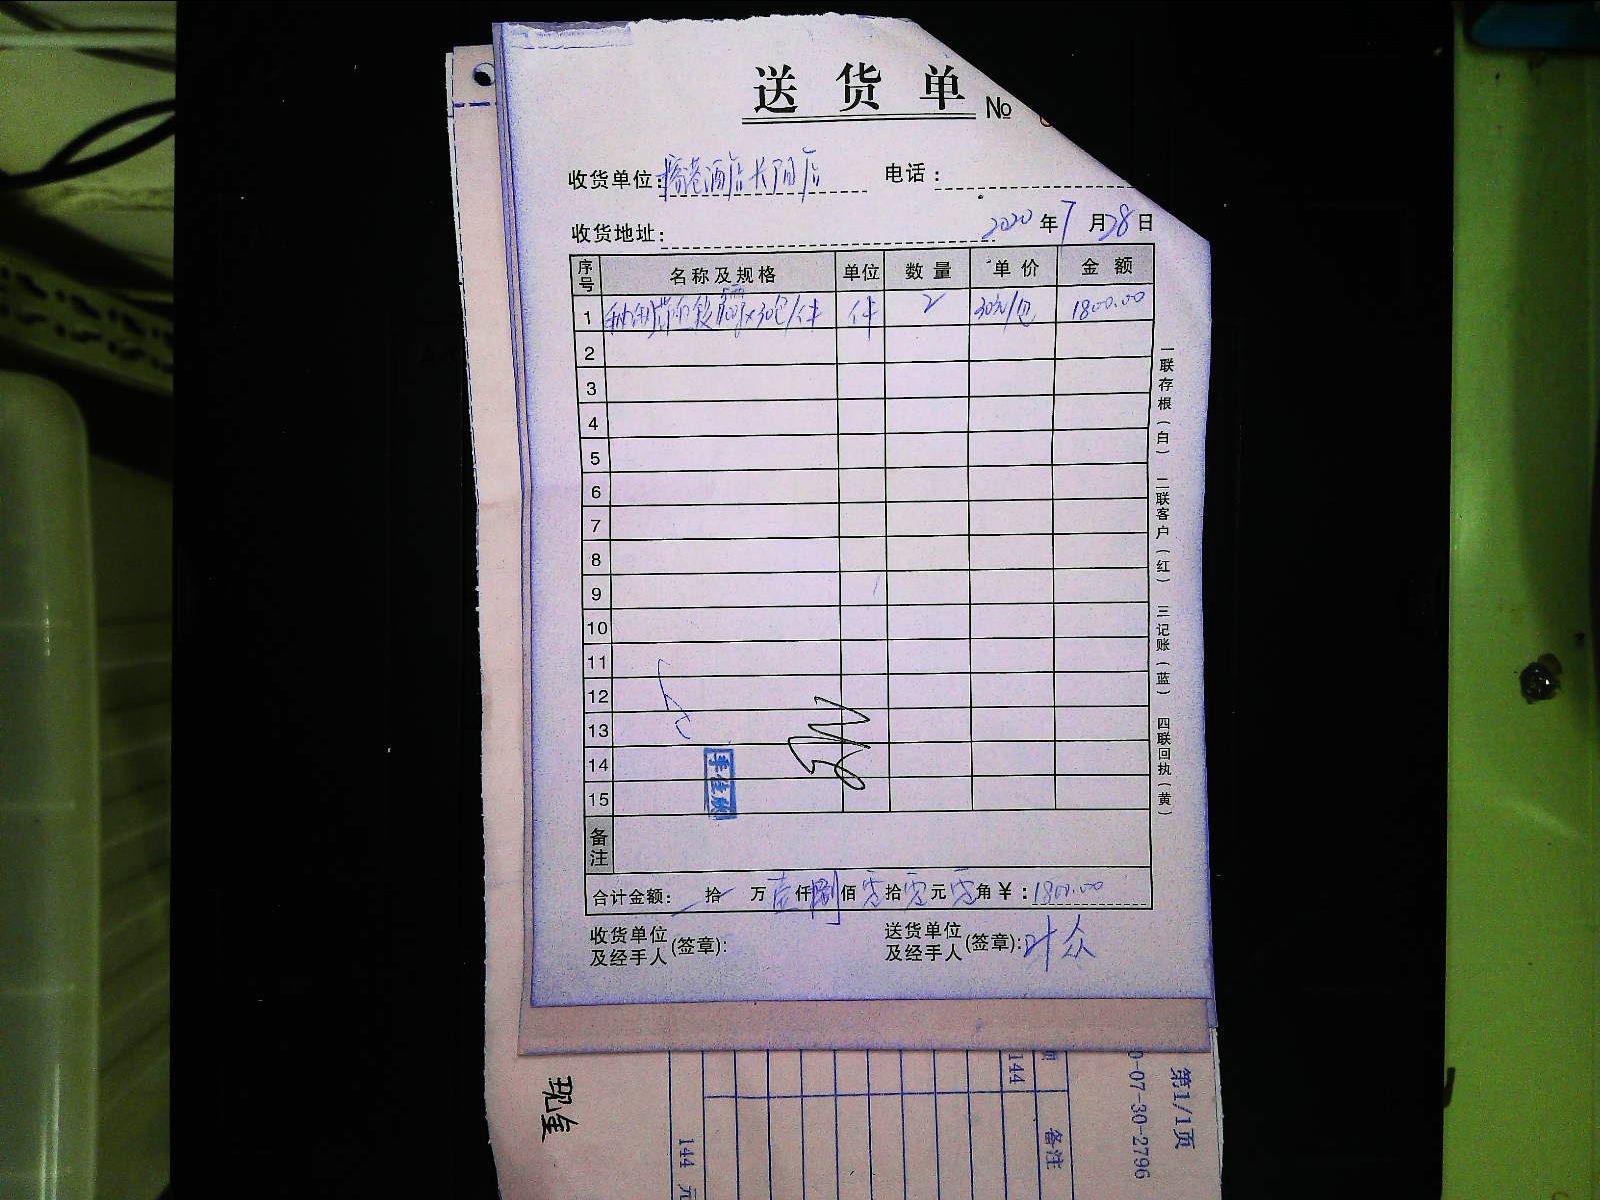 送货单 №
收货单位: 香港酒店长阳店 电话:
收货地址: 2020年7月28日
序号 名称及规格 单位 数量 单价 金额
1 件 2 30元/包 1800.00
2
3
4
5
6
7
8
9
10
11
12
13
14
15
备注
合计金额: 拾 万 壹仟捌佰零拾零元零角¥: 1800.00
收货单位及经手人(签章): 送货单位及经手人(签章): 叶众
一联存根(白) 二联客户(红) 三记账(蓝) 四联回执(黄)
现金
第1/1页
0-07-30-2796
备注
144
144 元